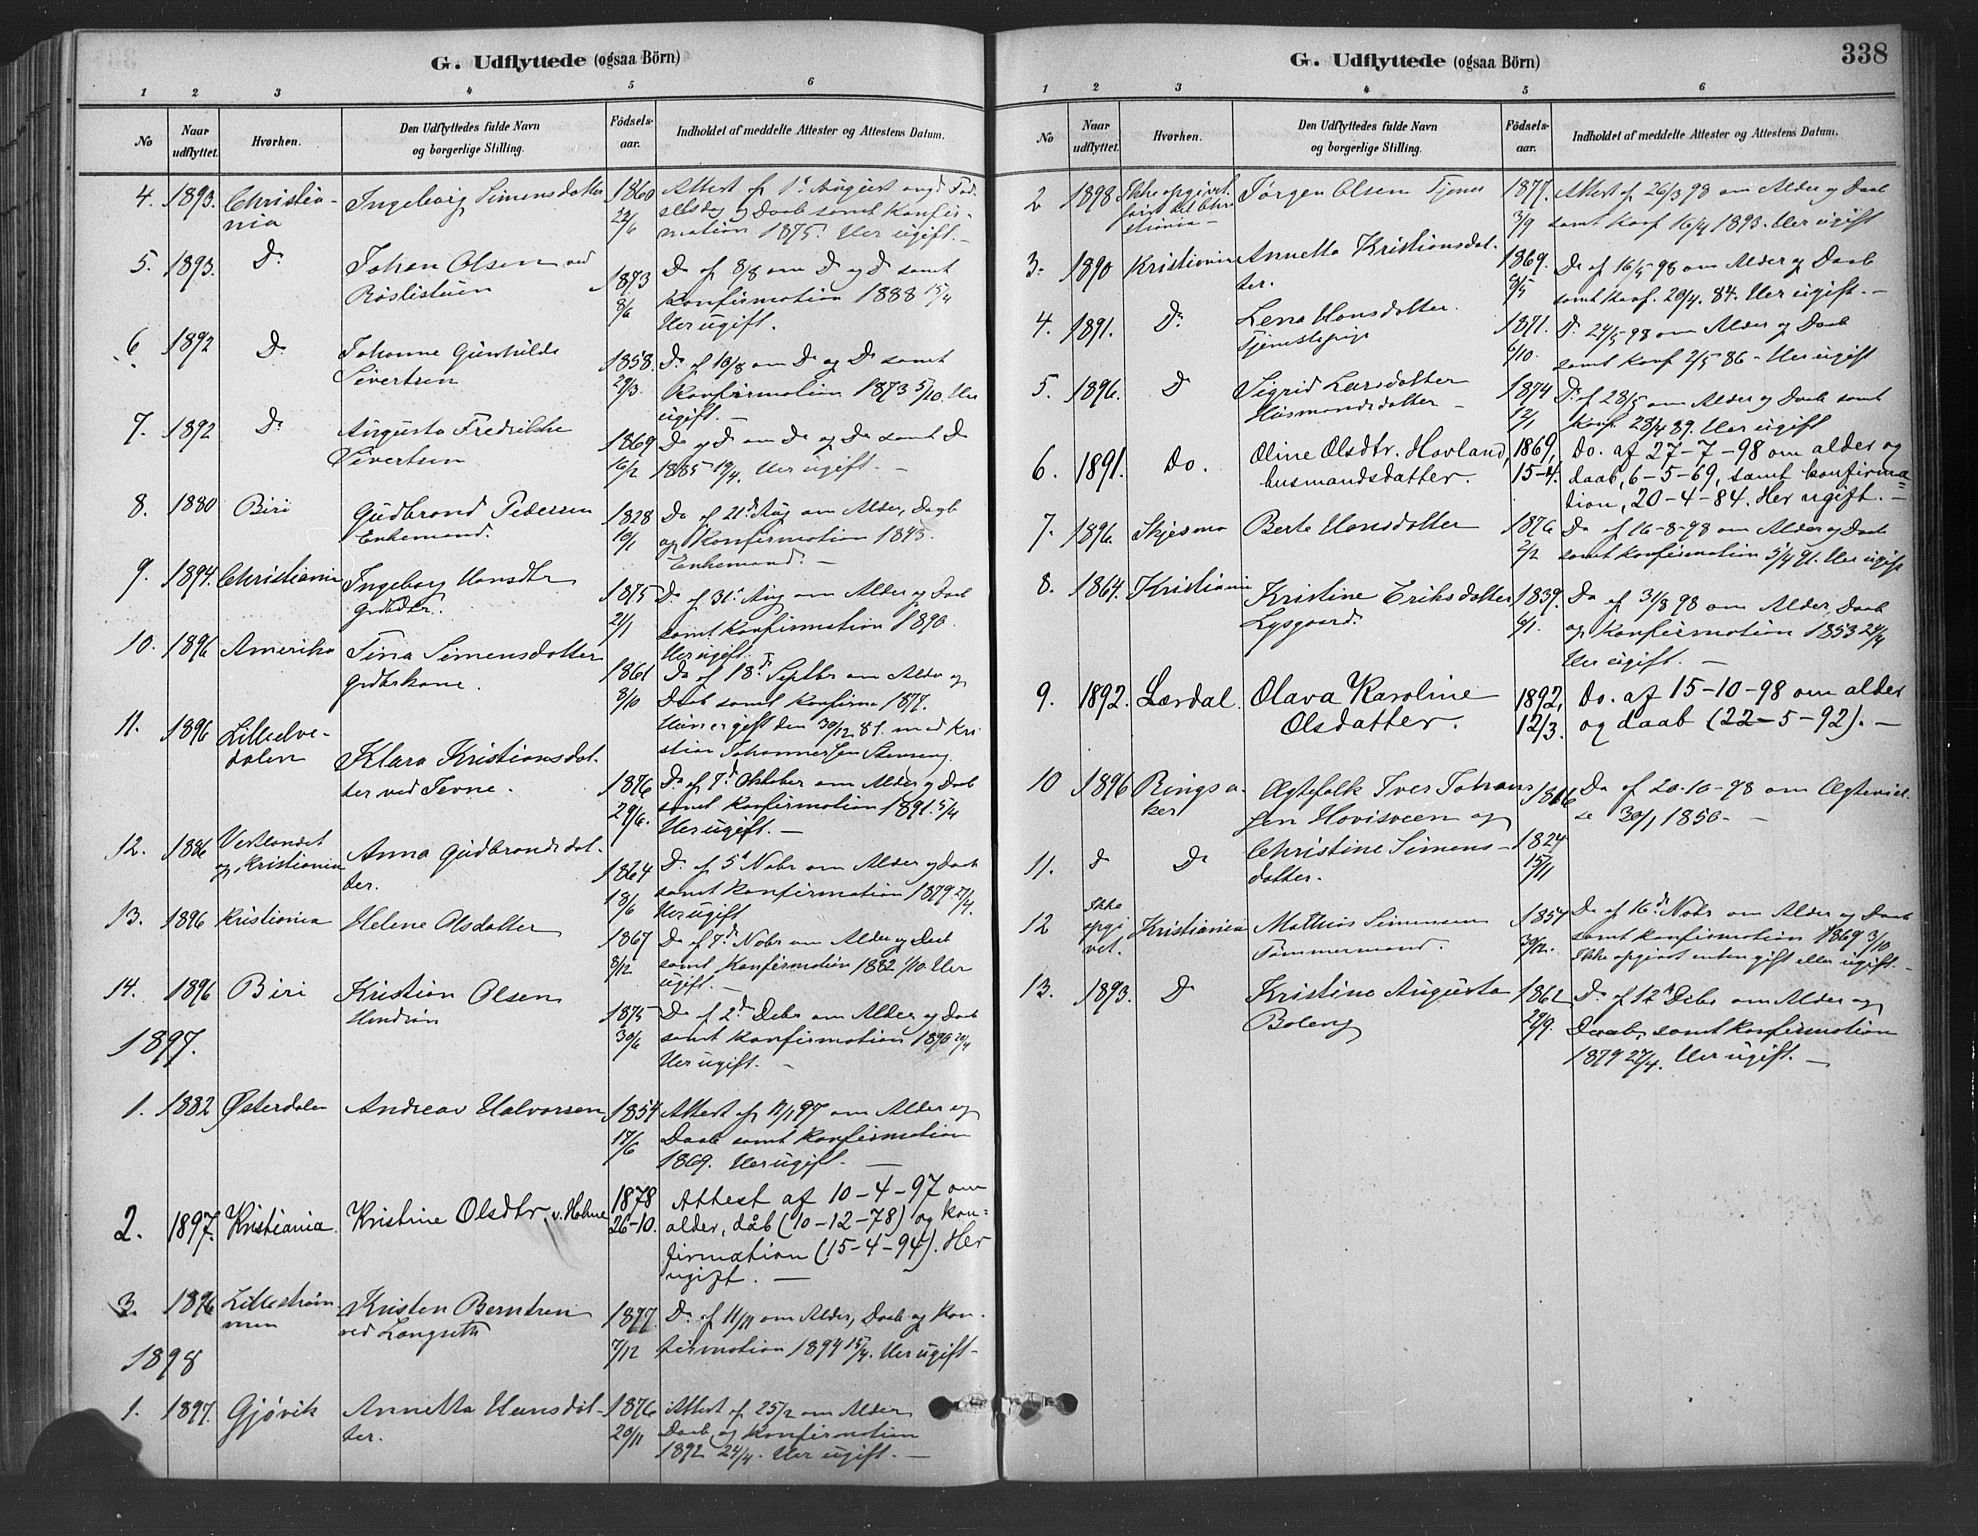 G. Udflyttede (ogsaa Börn)
1 2 3 4 5 6
No
Naar udflyttet.
Hvorhen.
Den Udflyttedes fulde Navn og borgerlige Stilling.
Födsels-aar.
Indholdet af meddelte Attester og Attestens Datum.
4. 1893. Christia- Ingeborg Simensdatter 1860 Attest af 1ste August angd Fød-
nia 22/6 selsdag og Daab samt Konfir-
mation 1875. Her ugift. —
5. 1893. Do Johan Olsen ved 1873 Do af 8/8 om Do og Do samt
Röslistuen 8/6 Konfirmation 1888 15/4
Her ugift.
6 1892 Do Johanne Gunhilde 1858. Do af 10/8 om Do og Do samt
Sivertsen 29/3. Konfirmation 1873 5/10. Her
ugift. —
7. 1892 Do Augusta Fredrikke 1869 Do og Do om Do og Do samt Do
Sivertsen 16/2 1885 19/4. Her ugift. —
8. 1880 Biri Gudbrand Pedersen 1828 Do af 21de Aug om Alder, Daab
Enkemand. 10/1 og Konfirmation 1843.
Enkemand. —
9. 1894. Christiania Ingeborg Hansdtr 1875 Do af 31te Aug om Alder og Daab
Grdtr. 21/1 samt Konfirmation 1890.
Her ugift.
10. 1896 Amerika Tina Simensdatter 1861 Do af 18de Septbr om Alder og
Grdbrkone. 8/10 Daab samt Konfirma 1877.
Hun er gift den 30/12 81. med Kri
stian Johannessen Stenseng.
11. 1896 Lilleelve- Klara Kristiansdat- 1876 Do af 7de Oktober om Alder og Daab
dalen ter ved Tevne. 29/6. samt Konfirmation 1891. 5/4
Her ugift. —
12. 1886 Vestlandet Anna Gudbrandsdat- 1864 Do af 5te Novbr om Alder og Daab
og Kristiania ter. 18/6 samt Konfirmation 1879 27/4.
Her ugift
13. 1896 Kristiania Helene Olsdatter 1867 Do af 7de Novbr om Alder og Daab
8/12 samt Konfirmation 1882 1/10. Her
ugift. —
14. 1896 Biri Kristian Olsen 1875 Do af 2de Debr om Alder og Daab
30/6 samt Konfirmation 1890 20/4
Her ugift. —
1897.
1. 1882 Østerdalen Andreas Halvorsen 1854 Attest af 12/1 97 om Alder og
17/6 Daab samt Konfirmation
1869. Her ugift. —
2. 1897. Kristiania. Kristine Olsdtr. v. Holme 1878 Attest af 10-4-97 om
26-10. alder, dåb (10-12-78) og kon-
firmation (15-4-94). Her
ugift. —
3. 1896 Lillestrøm- Kristen Berntsen 1877 Do af 11/11 om Alder, Daab og Kon-
men ved Langseth 7/12 firmation 1894 15/4. Her ugift —
1898
1. 1897. Gjøvik Annetta Hansdat- 1876 Attest af 25/2 om Alder
ter. 20/11 Daab, og Konfirmation
1892 24/4. Her ugift. —
G. Udflyttede (ogsaa Börn)
338
1 2 3 4 5 6
No
Naar udflyttet.
Hvorhen.
Den Udflyttedes fulde Navn og borgerlige Stilling.
Födsels-aar.
Indholdet af meddelte Attester og Attestens Datum.
2 1898 Ikke opgivet. Jørgen Olsen 1877. Attest af 26/3 98 om Alder og Daab
3/9 samt Konf 16/4 1893. Her ugift
3. 1890 Kristiania Annetta Kristiansdat- 1869. Do af 16/5 98 om Alder og Daab
ter. samt Konf. 20/4. 84. Her ugift. —
4. 1891. Do. Lena Hansdatter. 1871. Do 24/5 98 om Alder og Daab
Tjenestepige 6/10. samt Konf 2/5 86 - Her ugift
5. 1896. Do Sigrid Larsdatter 1874 Do af 28/5 om Alder og Daab samt
Husmandsdatter — 12/1 Konf. 28/4 89. Her ugift
6. 1891. Do. Oline Olsdtr. Hovland, 1869, Do. af 27-7-98 om alder og
husmandsdatter. 15-4. daab, 6-5-69, samt konfirma=
tion, 20-4-84. Her ugift. —
7. 1896. Skjesmo Berte Hansdatter 1876 Do af 16-8-98 om Alder og Daab
2/2 samt Konfirmation 5/4 91. Her ugift
8. 1864. Kristiania Kristine Eriksdatter 1839. Do af 31/8 98 om Alder, Daab
Lysgaard. 6/1. og Konfirmation 1853 24/4
Her ugift. —
9. 1892. Lærdal. Olava Karoline 1892, Do. af 15-10-98 om alder
Olsdatter. 12/3. og daab (22-5-92). —
10 1896 Ringsa- Ægtefolk Iver Johans Do af 20-10-98 om Ægteviel.
ker sen Hovisveen og se 30/1 1850 —
11. d Do Christine Simens- 1824
datter. 15/11
12 Ikke opgi vet. Kristiania Mathias Simensen 1854 Do af 16de Novbr om Alder og Daab
Tømmermand. 30/2. samt Konfirmation 1869 3/10
Ikke opgivet enten gift eller ugift. —
13. 1893. Do Kristine Augusta 1862 Do af 12te Debr om Alder og
Boleng 29/9. Daab, samt Konfirmation
1879 27/4. Her ugift. —